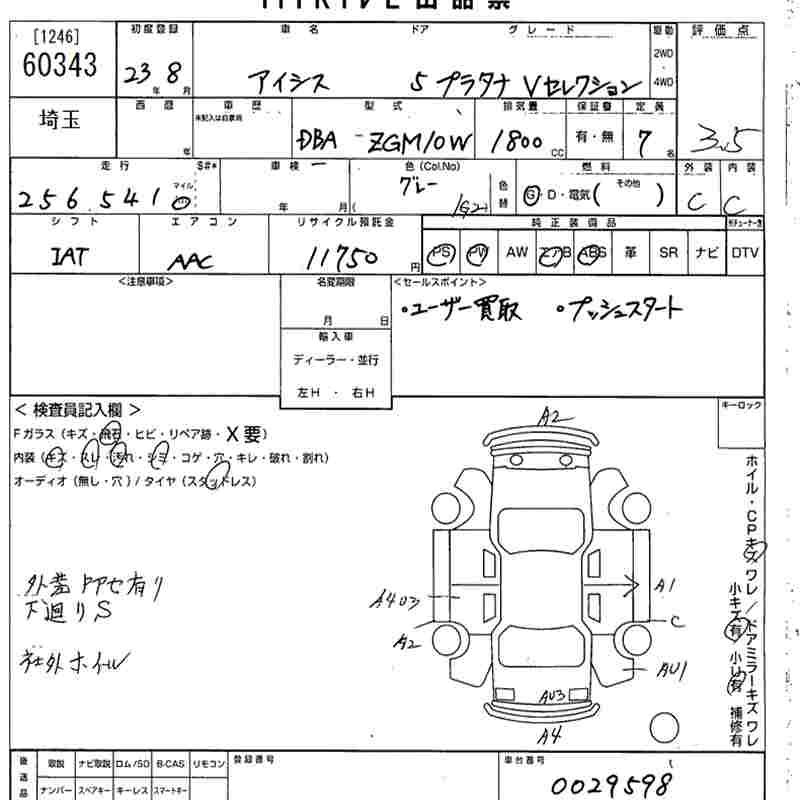 [1246]
60343
初度登録 車名 ドア グレード 駆動 評価点
23年 8月 アイシス 5 プラタナ Vセレクション 2WD・4WD
埼玉
西暦 年 車歴 未記入は自家用 型式 排気量 保証書 定員
DBA-ZGM10W 1800cc 有・無 7名 3.5
走行 S#* 車検 色(Col.No) 色替 燃料 外装 内装
256,541 マイル 年 月 グレー G・D・電気(その他) C C
シフト エアコン リサイクル預託金 純正装備品
IAT AAC 11750円 PS PW AW エアB ABS 革 SR ナビ DTV
<注意事項> 名変期限 <セールスポイント>
月 日 ・ユーザー買取 ・プッシュスタート
輸入車
ディーラー・並行
左H・右H
<検査員記入欄> キーロック
Fガラス(キズ・飛石・ヒビ・リペア跡・X要)
内装(キズ・スレ・汚れ・シミ・コゲ・穴・キレ・破れ・割れ)
オーディオ(無し・穴)/タイヤ(スタッドレス)
外装 ドアセ有り
下廻りS
社外ホイル
A2
A403
A1
A2
C
AU1
AU3
A4
ホイル・CPキズワレ/ドアミラーキズワレ
小キズ有 小U有 補修有
後送品 取説 ナビ取説 ロム/SD B-CAS リモコン 登録番号 車台番号
ナンバー スペアキー キーレス スマートキー 0029598